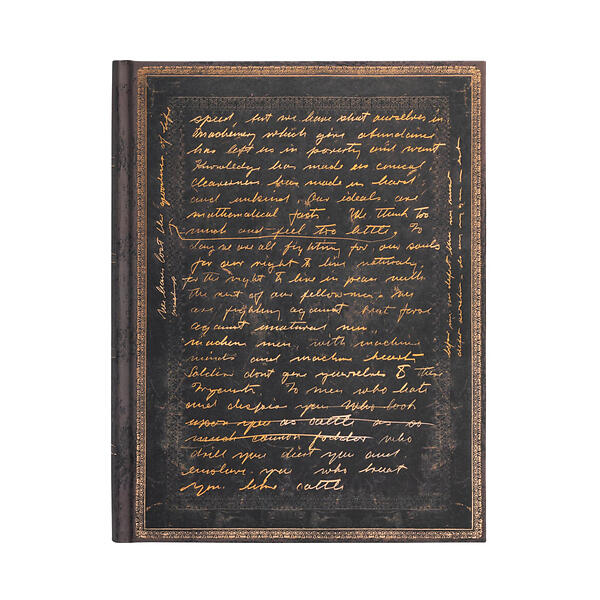 speed, but we have shut ourselves in
Machinery which gives abundance
has left us in poverty and want
Knowledge has made us cynical
cleverness has made us hard
and unkind. Our ideals are
mathematical facts. We think too
much and feel too little, To
day we are all fighting for our souls
for our right to live naturaly
for the right to live in peace with
the rest of our fellow men. We
are fighting against that force
against unatural men,
machine men, with machine
minds and machine hearts,
dont give yourselves to
To men who hate
and despise you Who look
upon you as cattle as so
much cannon fodder who
drill you diet you and
enslave you who treat
you like cattle
We have lost the of life